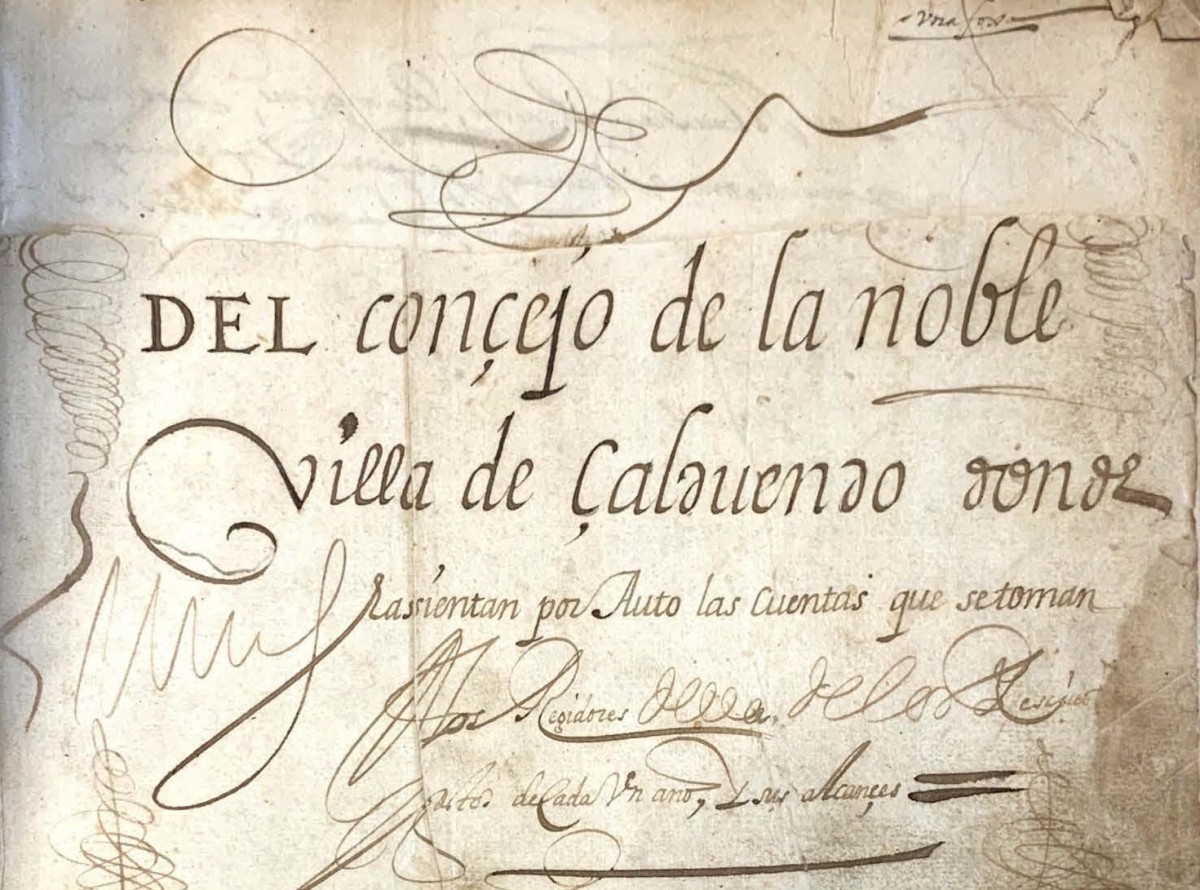 DEL conçejo de la noble
Villa de Çalduendo donde
se assientan por Auto las cuentas que se toman
A los Regidores della, de los Resciuos
gastos de Cada Vn ano, Y sus alcançes